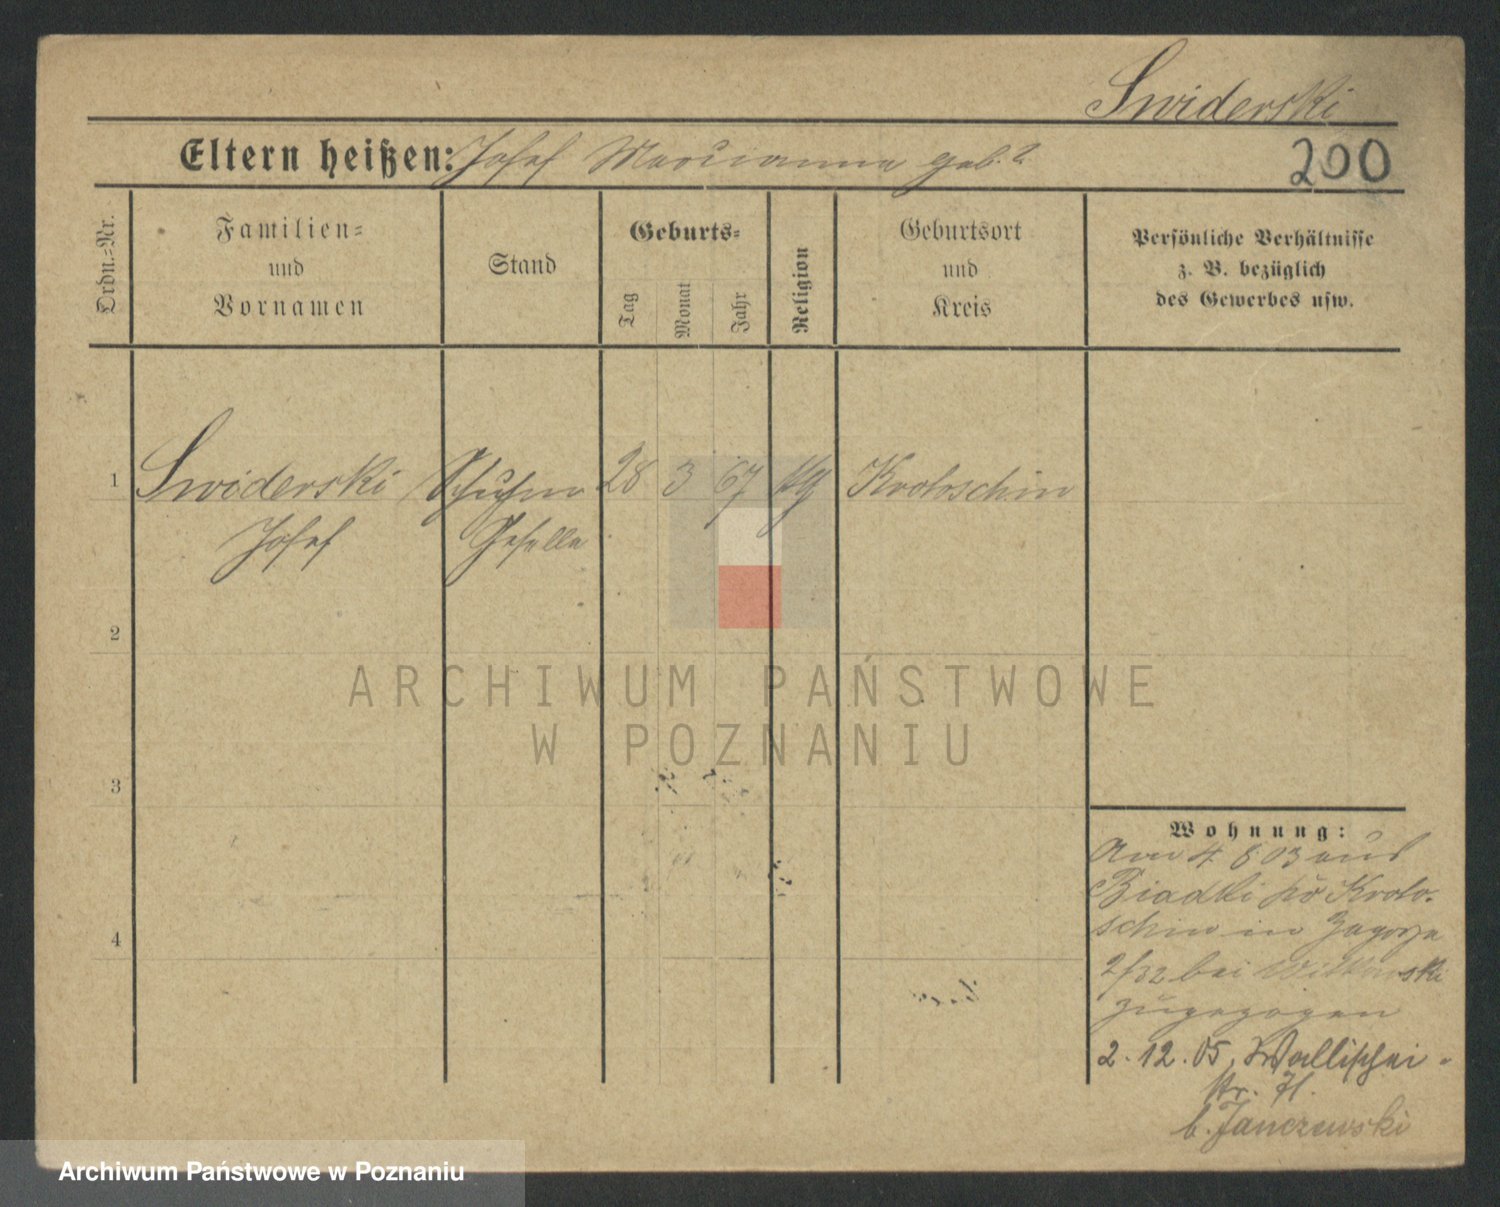 Swiderski
Eltern heißen: Josef Marianna geb. ?
200
Ordn.=Nr.
Familien=
und
Vornamen
Stand
Geburts=
Tag
Monat
Jahr
Religion
Geburtsort
und
Kreis
Persönliche Verhältnisse
z. B. bezüglich
des Gewerbes usw.
1
Swiderski Schuhm 28 3 67 Krotoschin
Josef Geselle
2
ARCHIWUM PAŃSTWOWE
W POZNANIU
3
4
Wohnung:
Am 4 8 03 aus
Biadki Kroto-
schin in Zagorze
2/32 bei Witkowski
zugezogen
2.12.05, Wallischei-
str.
b. Janczewski
Archiwum Państwowe w Poznaniu